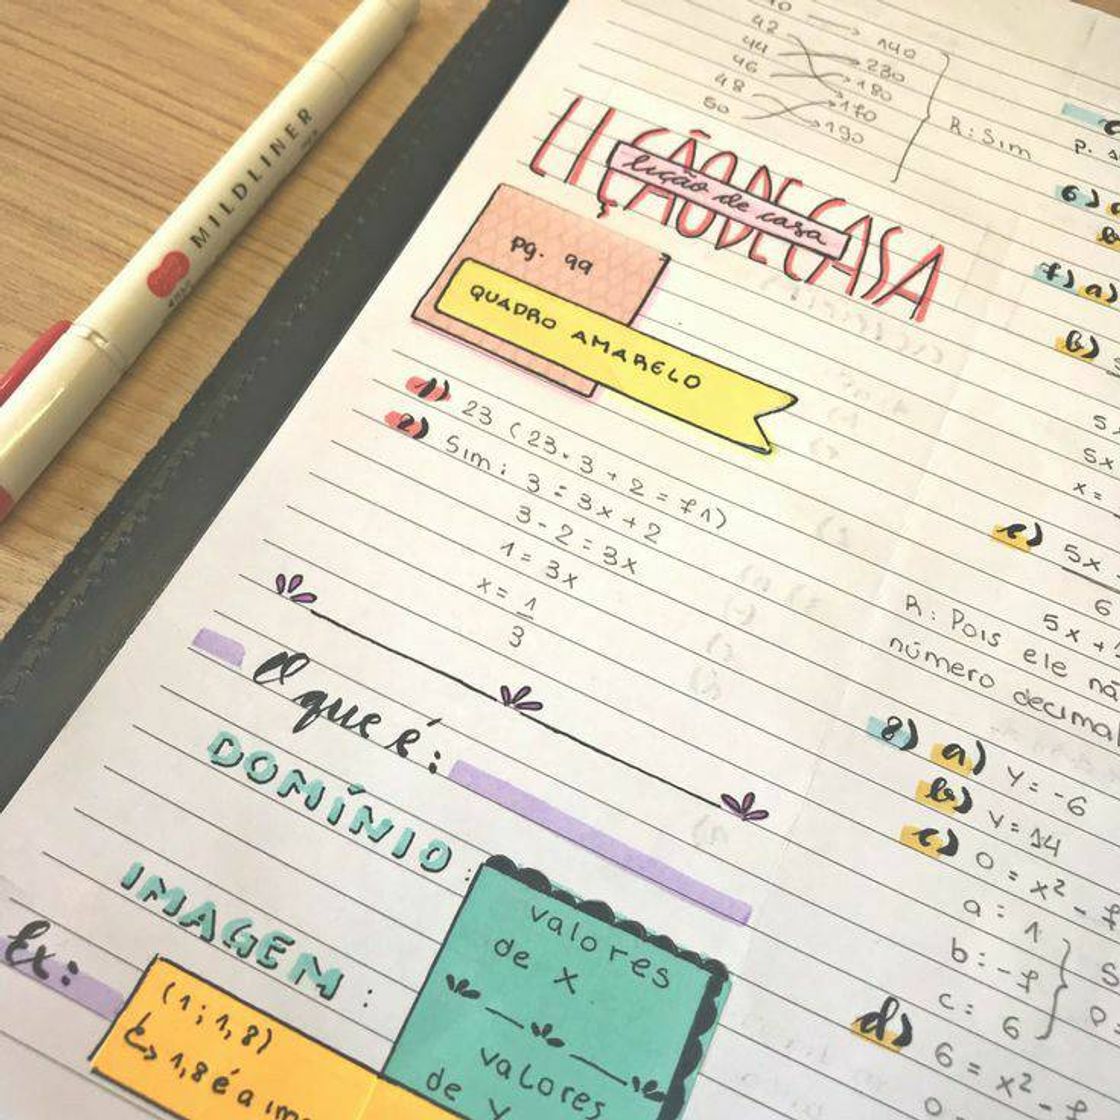 MILDLINER
42
44
46
48
50
140
230
180
170
190
R: Sim
LIÇÃO DE CASA
lição de casa
pg. 99
QUADRO AMARELO
1) 23 (23.3 + 2 = 71)
2) Sim: 3 = 3x + 2
3 - 2 = 3x
1 = 3x
x = 1
3
O que é:
DOMÍNIO:
valores
de x
IMAGEM:
valores
de y
Ex:
(1; 1,8)
↳ 1,8 é a
6)
7) a)
b)
5x
x =
e) 5x
6
5x +
R: Pois ele
número decimal
8) a) y = -6
b) y = 14
c) 0 = x² - 7
a = 1
b = -7
c = 6
d) 6 = x² -
0